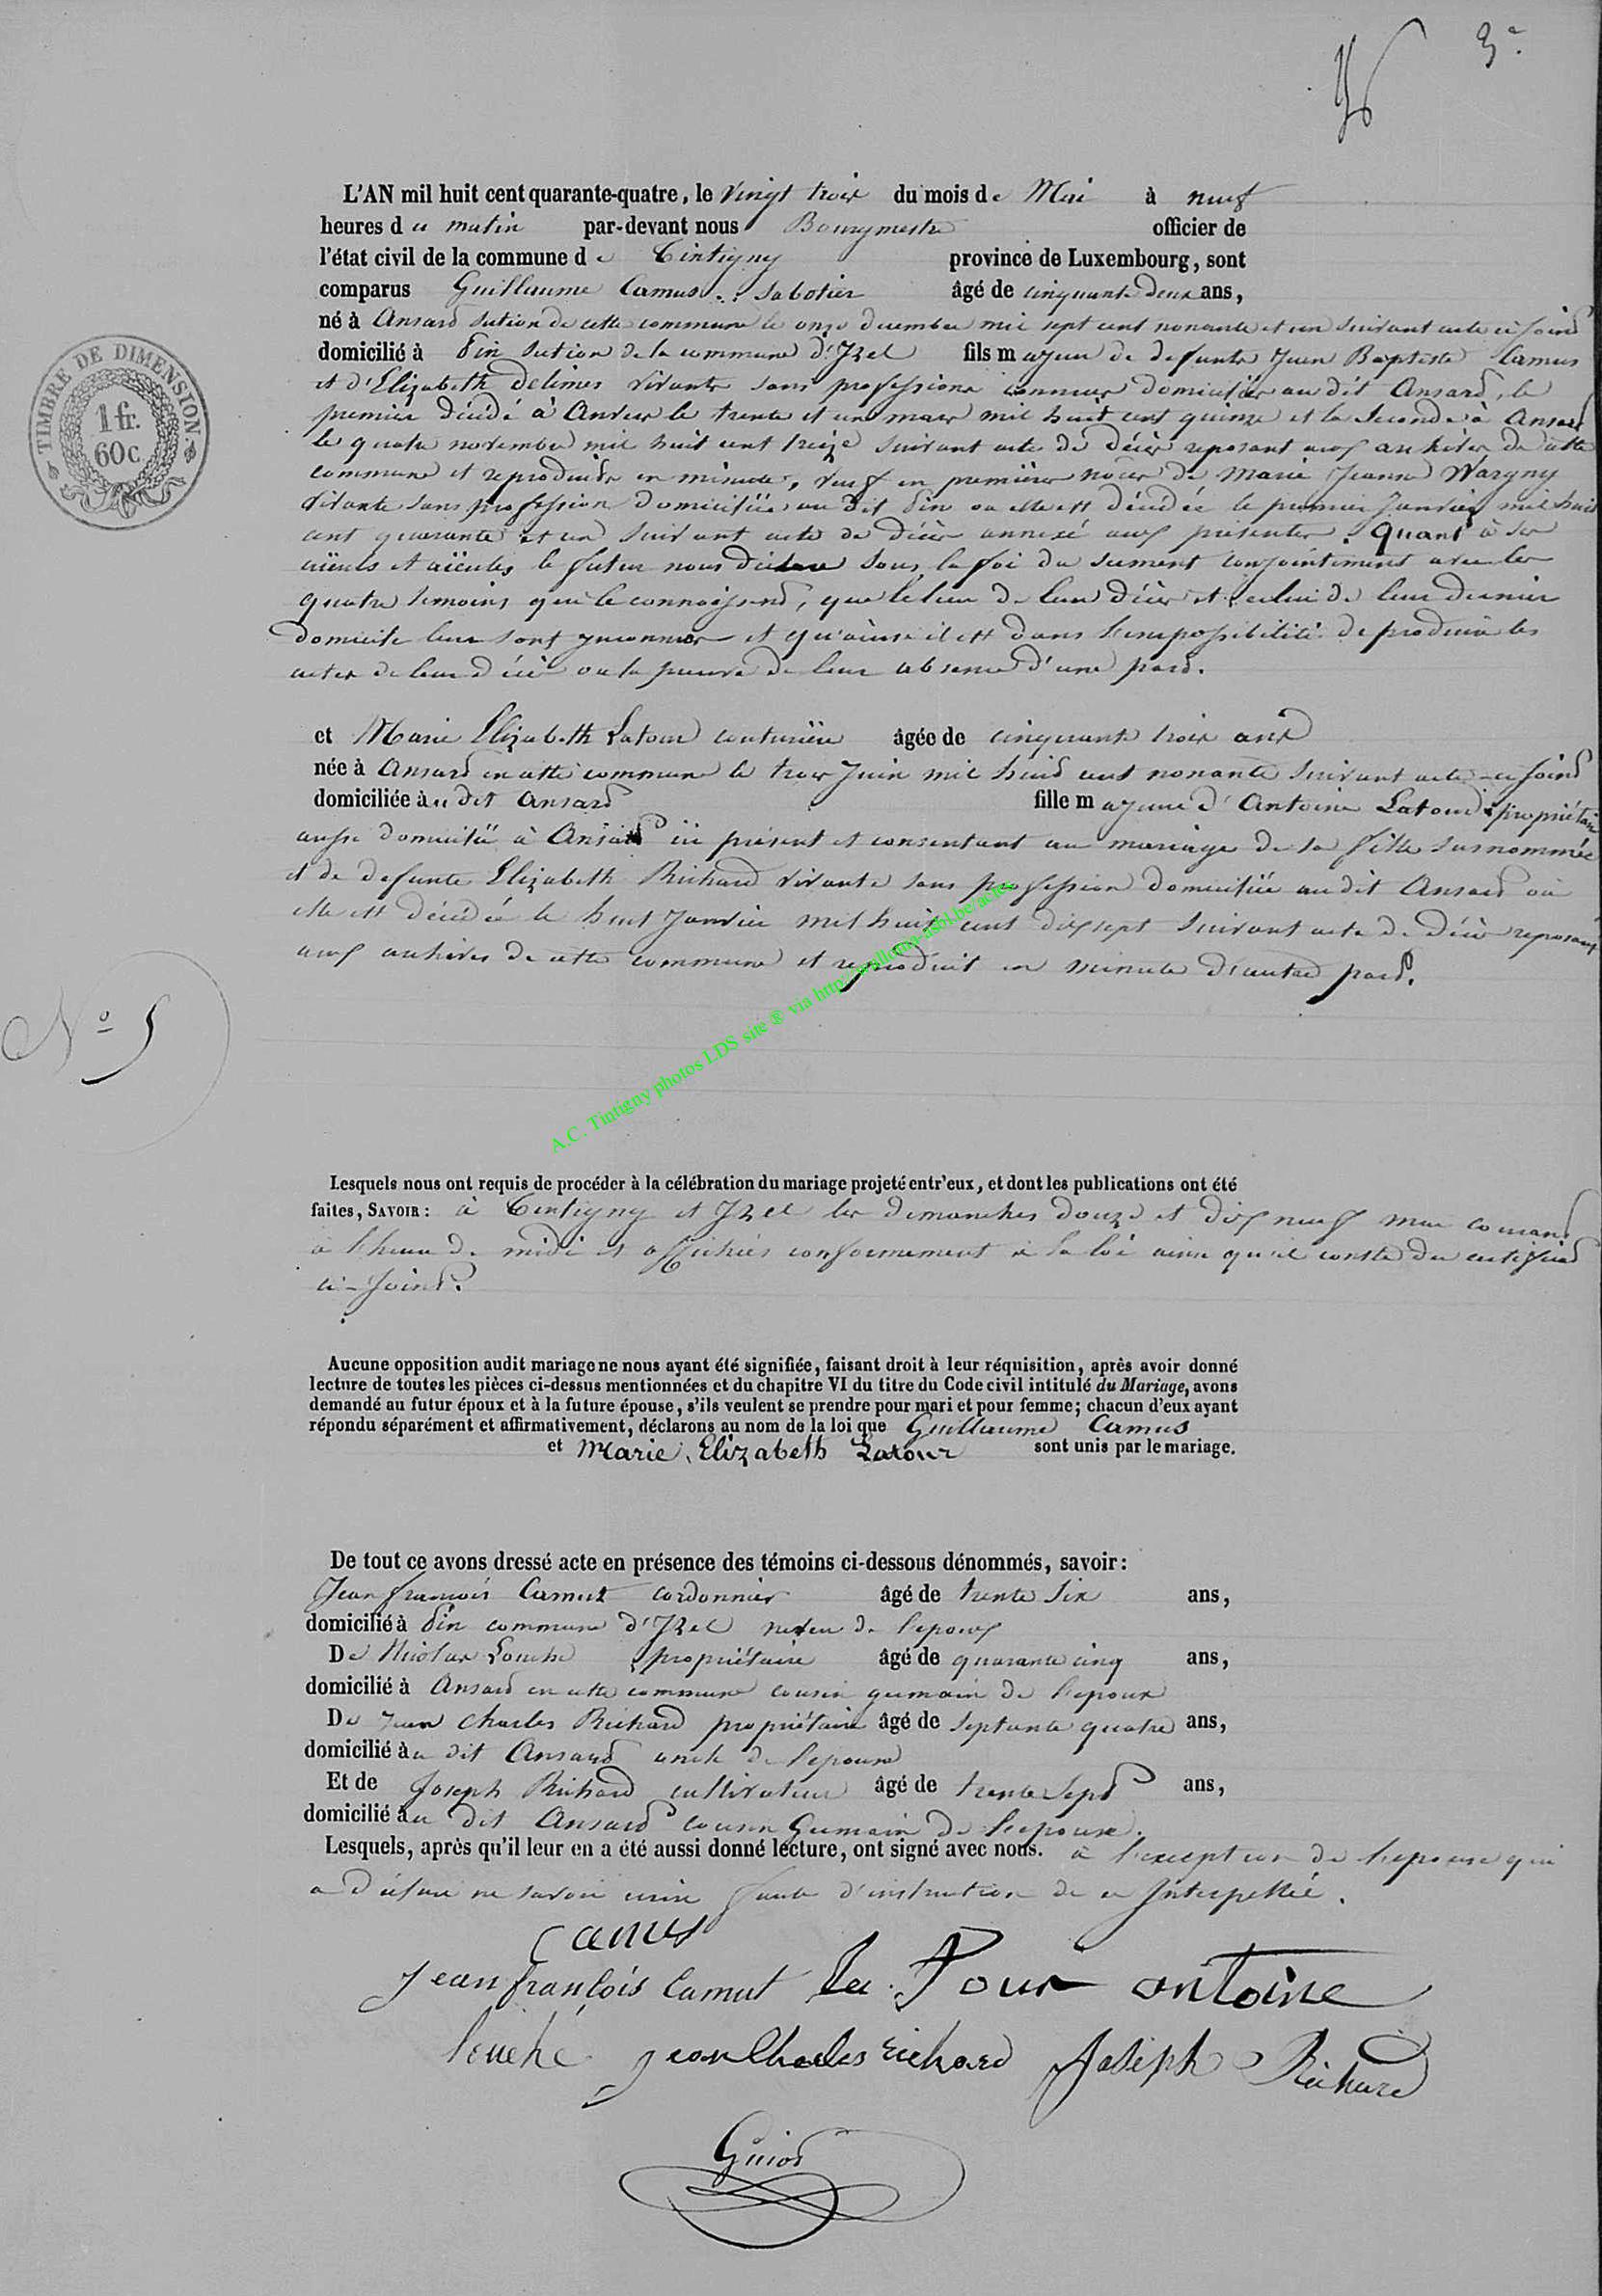 3e
L'AN mil huit cent quarante-quatre, le vingt trois du mois de Mai à neuf
heures du matin par-devant nous Bourgmestre officier de
l'état civil de la commune de Tintigny province de Luxembourg, sont
comparus Guillaume Camus sabotier âgé de cinquante deux ans,
né à Ansard section de cette commune le onze decembre mil sept cent nonante et un suivant acte ci joint
domicilié à Pin section de la commune d'Izel fils majeur de defunts Jean Baptiste Camus
et d'Elizabeth Delimes vivants sans profession connue domiciliés au dit Ansard, le
premier décédé à le trente et un mars mil huit cent quinze et la seconde à Ansard
le quatre novembre mil huit cent treize suivant actes de décès reposant aux archives de cette
commune et reproduits en minute, veuf en premières noces de Marie Jeanne Wargny
vivante sans profession domiciliée au dit Pin où elle est décédée le premier Janvier mil huit
cent quarante et un suivant acte de décès annexé aux présentes. Quant à ses
aïeuls et aïeules le futur nous declare sous la foi du serment conjointement avec les
quatre temoins qui le connoissent, que le lieu de leur décès et celui de leur dernier
domicile leur sont inconnus et qu'ainsi il est dans l'impossibilité de produire les
actes de leur décès ou la preuve de leur absence d'une part.
et Marie Elizabeth Latour couturière âgée de cinquante trois ans
née à Ansard en cette commune le trois Juin mil huit cent nonante suivant acte ci joint
domiciliée au dit Ansard fille majeure d'Antoine Latour propriétaire
aussi domicilié à Ansard ici présent et consentant au mariage de sa fille susnommée
et de defunte Elizabeth Richard vivante sans profession domiciliée au dit Ansard où
elle est décédée le huit Janvier mil huit cent dix sept suivant acte de décès reposant
aux archives de cette commune et reproduit en minute d'autre part.
TIMBRE DE DIMENSION
1 fr.
60 c
No 5
A.C. Tintigny photos LDS site ® via http://wallonia-asbl.be/actes
Lesquels nous ont requis de procéder à la célébration du mariage projeté entr'eux, et dont les publications ont été
faites, SAVOIR : à Tintigny et Izel les dimanches douze et dix neuf mai courant
à l'heure de midi et affichées conformement à la loi ainsi qu'il conste du certificat
ci-joint.
Aucune opposition audit mariage ne nous ayant été signifiée, faisant droit à leur réquisition, après avoir donné
lecture de toutes les pièces ci-dessus mentionnées et du chapitre VI du titre du Code civil intitulé du Mariage, avons
demandé au futur époux et à la future épouse, s'ils veulent se prendre pour mari et pour femme; chacun d'eux ayant
répondu séparément et affirmativement, déclarons au nom de la loi que Guillaume Camus
et Marie Elizabeth Latour sont unis par le mariage.
De tout ce avons dressé acte en présence des témoins ci-dessous dénommés, savoir :
Jean françois Camus cordonnier âgé de trente six ans,
domicilié à Pin commune d'Izel neveu de l'epoux
De Nicolas Louche propriétaire âgé de quarante cinq ans,
domicilié à Ansard en cette commune cousin germain de l'epoux
De Jean Charles Richard propriétaire âgé de septante quatre ans,
domicilié au dit Ansard oncle de l'epouse
Et de Joseph Richard cultivateur âgé de trente sept ans,
domicilié au dit Ansard cousin Germain de l'epouse.
Lesquels, après qu'il leur en a été aussi donné lecture, ont signé avec nous. à l'exception de l'epouse qui
a déclaré ne savoir écrire faute d'instruction de ce Interpellée.
Camus
jean françois Camut La Tour antoine
louché jean Charles richard Joseph Richard
Guiot